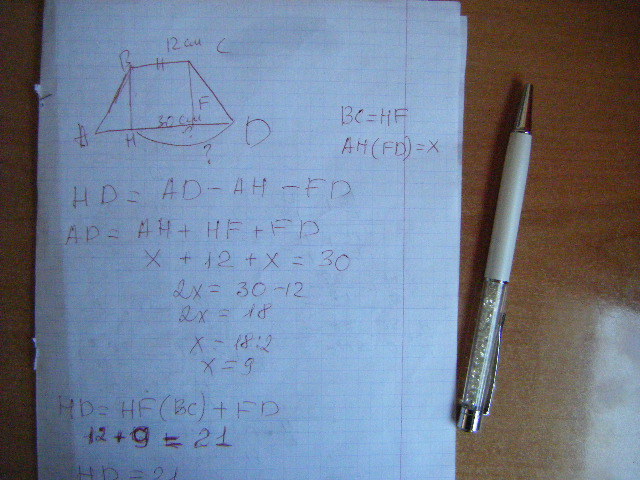 12 см
B H C
F
30 см
A H D
?
BC=HF
AH(FD)=x
HD= AD-AH-FD
AD= AH+HF+FD
x+12+x=30
2x=30-12
2x=18
x=18:2
x=9
HD=HF(BC)+FD
12+9=21
HD=21